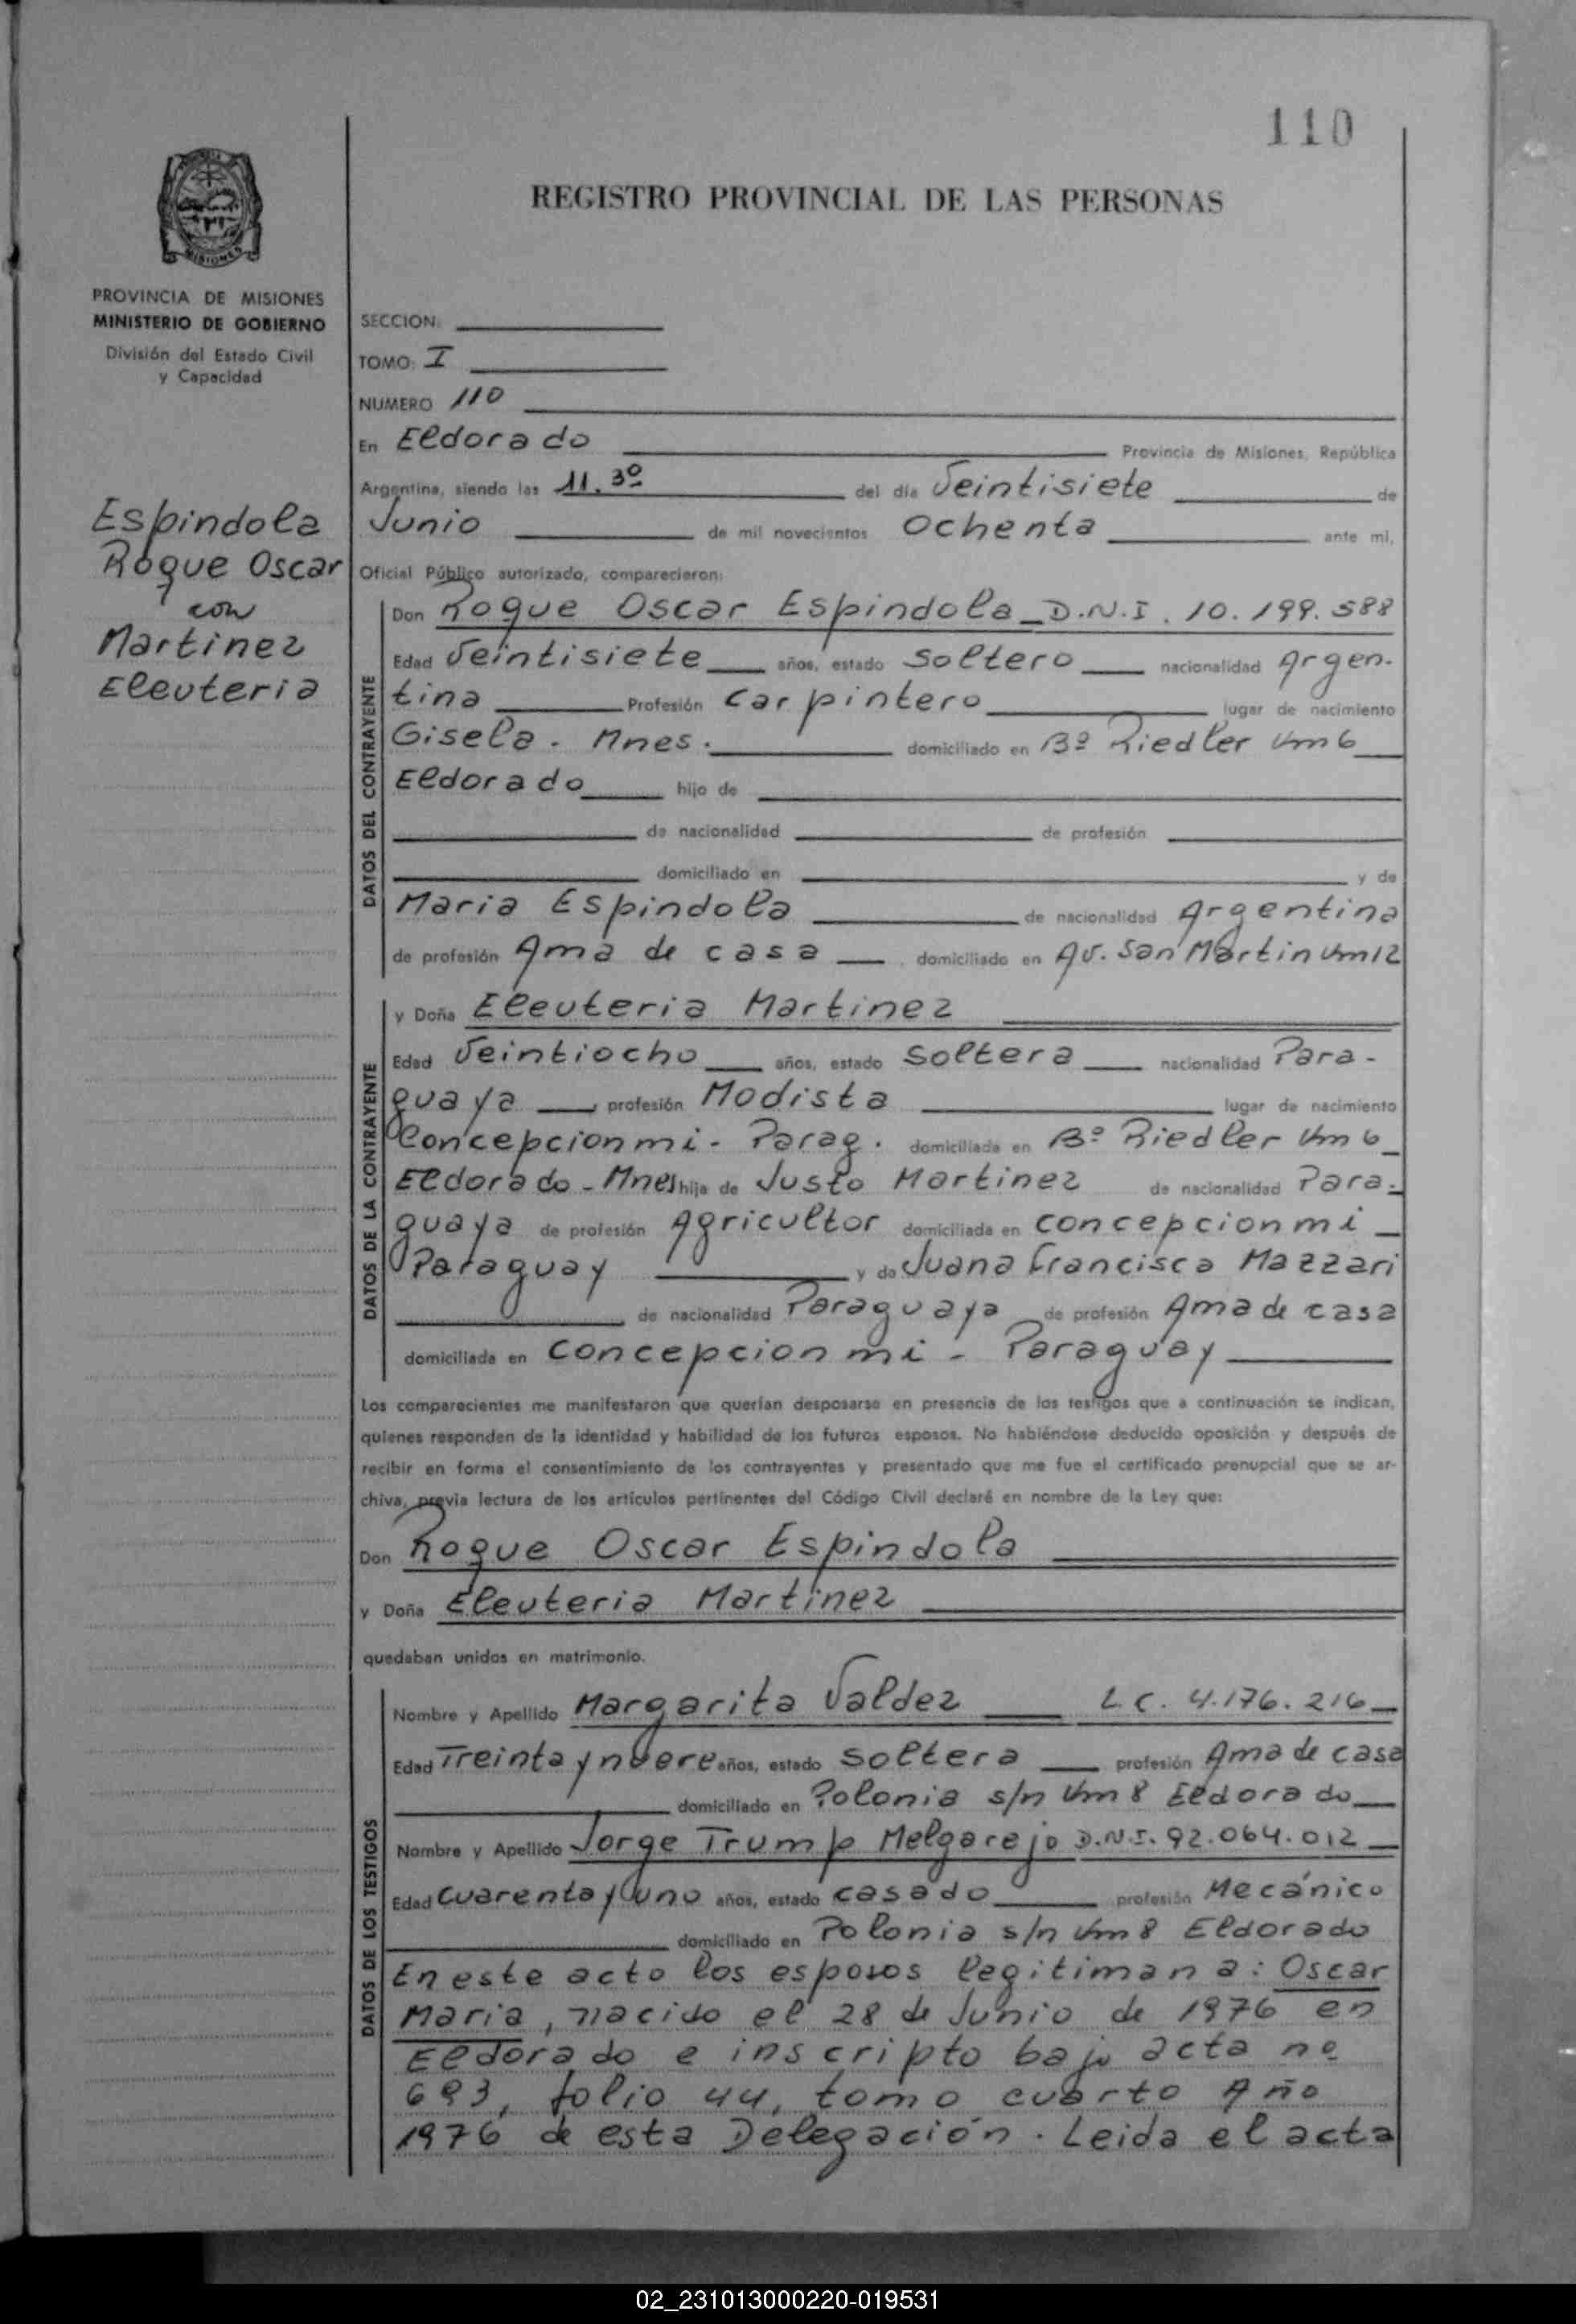 110
REGISTRO PROVINCIAL DE LAS PERSONAS
MISIONES
PROVINCIA DE MISIONES
MINISTERIO DE GOBIERNO
División del Estado Civil
y Capacidad
Espindola
Roque Oscar
con
Martinez
Eleuteria
SECCION:
TOMO: I
NUMERO 110
En Eldorado Provincia de Misiones, República
Argentina, siendo las 11.30 del día Veintisiete de
Junio de mil novecientos Ochenta ante mi,
Oficial Público autorizado, comparecieron:
DATOS DEL CONTRAYENTE
Don Roque Oscar Espindola D.N.I. 10.199.588
Edad Veintisiete años, estado Soltero nacionalidad Argen-
tina Profesión Carpintero lugar de nacimiento
Gisela - Mnes. domiciliado en Bº Riedler Km 6
Eldorado hijo de
de nacionalidad de profesión
domiciliado en y de
Maria Espindola de nacionalidad Argentina
de profesión Ama de casa domiciliado en Av. San Martin Km 12
DATOS DE LA CONTRAYENTE
y Doña Eleuteria Martinez
Edad Veintiocho años, estado Soltera nacionalidad Para-
guaya profesión Modista lugar de nacimiento
Concepcion mi - Parag. domiciliada en Bº Riedler Km 6
Eldorado - Mnes hija de Justo Martinez de nacionalidad Para-
guaya de profesión Agricultor domiciliada en Concepcion mi
Paraguay y de Juana Francisca Mazzari
de nacionalidad Paraguaya de profesión Ama de casa
domiciliada en Concepcion mi - Paraguay
Los comparecientes me manifestaron que querían desposarse en presencia de los testigos que a continuación se indican,
quienes responden de la identidad y habilidad de los futuros esposos. No habiéndose deducido oposición y después de
recibir en forma el consentimiento de los contrayentes y presentado que me fue el certificado prenupcial que se ar-
chiva, previa lectura de los artículos pertinentes del Código Civil declaré en nombre de la Ley que:
Don Roque Oscar Espindola
y Doña Eleuteria Martinez
quedaban unidos en matrimonio.
DATOS DE LOS TESTIGOS
Nombre y Apellido Margarita Valdez L.C. 4.176.216
Edad Treinta y nueve años, estado Soltera profesión Ama de casa
domiciliado en Polonia s/n Km 8 Eldorado
Nombre y Apellido Jorge Trump Melgarejo D.N.I. 92.064.012
Edad Cuarenta y uno años, estado casado profesión Mecánico
domiciliado en Polonia s/n Km 8 Eldorado
En este acto los esposos legitiman a: Oscar
Maria, nacido el 28 de Junio de 1976 en
Eldorado e inscripto bajo acta nº
693, folio 44, tomo cuarto Año
1976 de esta Delegación. Leida el acta
02_231013000220-019531